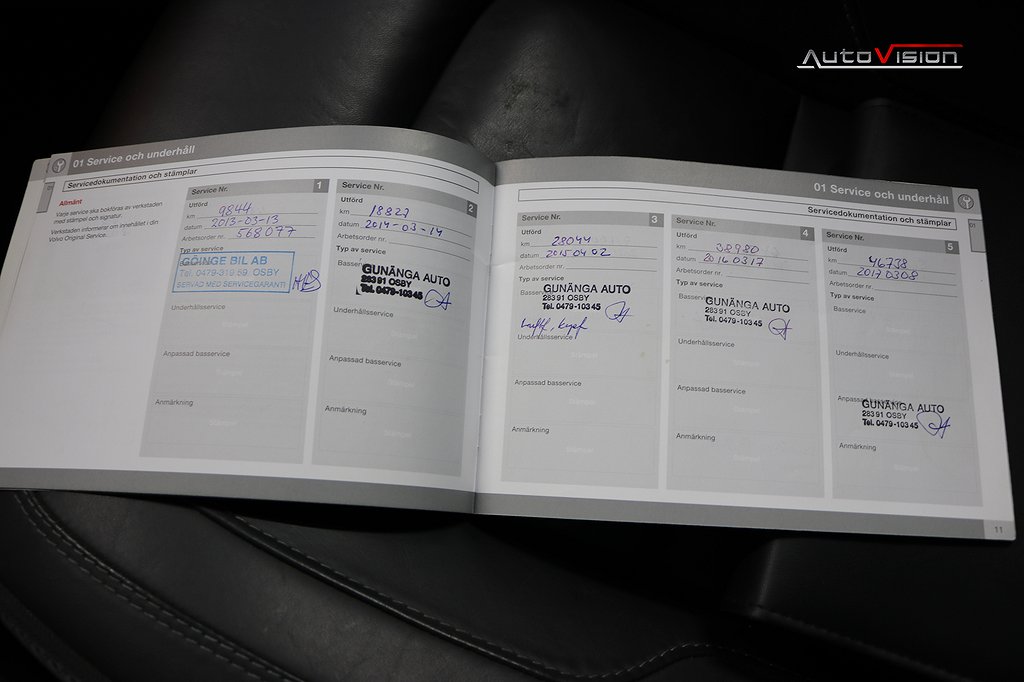 AutoVision
01 Service och underhåll
Servicedokumentation och stämplar
Allmänt
Varje service ska bokföras av verkstaden
med stämpel och signatur.
Verkstaden informerar om innehållet i din
Volvo Original Service.
Service Nr. 1
Utförd
km 9844
datum 2013-03-13
Arbetsorder nr. 568077
Typ av service
GÖINGE BIL AB
Tel. 0479-319 59, OSBY
SERVAD MED SERVICEGARANTI
Underhållsservice
Stämpel
Anpassad basservice
Stämpel
Anmärkning
Stämpel
Service Nr. 2
Utförd
km 18827
datum 2014-03-14
Arbetsorder nr.
Typ av service
Basservice
GUNÄNGA AUTO
283 91 OSBY
Tel. 0479-103 45
Underhållsservice
Stämpel
Anpassad basservice
Stämpel
Anmärkning
Stämpel
01 Service och underhåll
Servicedokumentation och stämplar
01
Service Nr. 3
Utförd
km 28044
datum 20150402
Arbetsorder nr.
Typ av service
Basservice
GUNÄNGA AUTO
283 91 OSBY
Tel. 0479-103 45
Underhållsservice
Stämpel
Anpassad basservice
Stämpel
Anmärkning
Stämpel
Service Nr. 4
Utförd
km 38980
datum 20160317
Arbetsorder nr.
Typ av service
Basservice
GUNÄNGA AUTO
283 91 OSBY
Tel. 0479-103 45
Underhållsservice
Stämpel
Anpassad basservice
Stämpel
Anmärkning
Stämpel
Service Nr. 5
Utförd
km 46738
datum 20170308
Arbetsorder nr.
Typ av service
Basservice
Stämpel
Underhållsservice
Stämpel
Anpassad basservice
GUNÄNGA AUTO
283 91 OSBY
Tel. 0479-103 45
Anmärkning
Stämpel
11